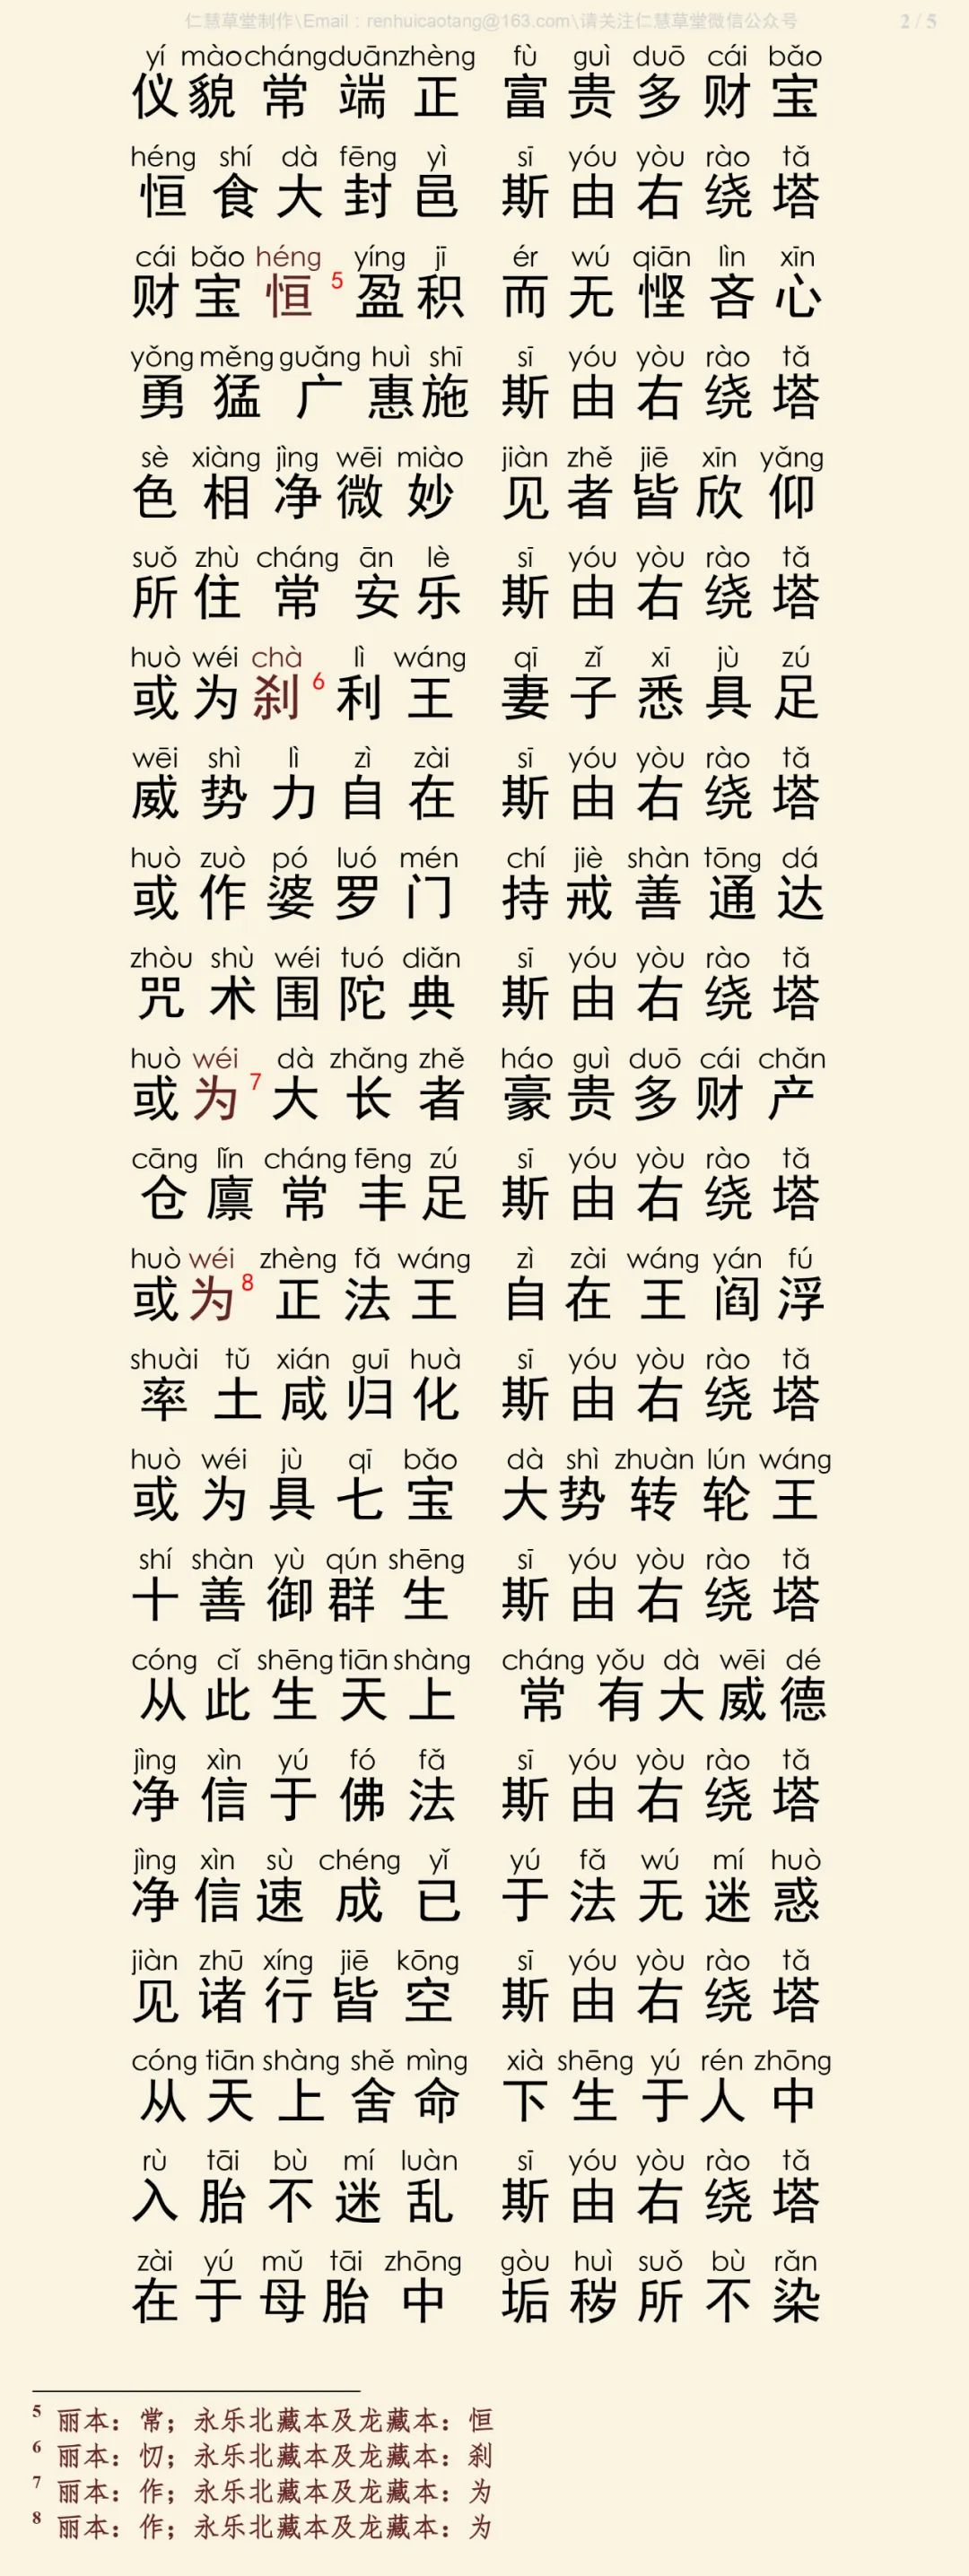 仁慧草堂制作\Email：renhuicaotang@163.com\请关注仁慧草堂微信公众号 2 / 5
yí mào cháng duān zhèng fù guì duō cái bǎo
仪貌常端正 富贵多财宝
héng shí dà fēng yì sī yóu yòu rào tǎ
恒食大封邑 斯由右绕塔
cái bǎo héng yíng jī ér wú qiān lìn xīn
财宝恒5盈积 而无悭吝心
yǒng měng guǎng huì shī sī yóu yòu rào tǎ
勇猛广惠施 斯由右绕塔
sè xiàng jìng wēi miào jiàn zhě jiē xīn yǎng
色相净微妙 见者皆欣仰
suǒ zhù cháng ān lè sī yóu yòu rào tǎ
所住常安乐 斯由右绕塔
huò wéi chà lì wáng qī zǐ xī jù zú
或为刹6利王 妻子悉具足
wēi shì lì zì zài sī yóu yòu rào tǎ
威势力自在 斯由右绕塔
huò zuò pó luó mén chí jiè shàn tōng dá
或作婆罗门 持戒善通达
zhòu shù wéi tuó diǎn sī yóu yòu rào tǎ
咒术围陀典 斯由右绕塔
huò wéi dà zhǎng zhě háo guì duō cái chǎn
或为7大长者 豪贵多财产
cāng lǐn cháng fēng zú sī yóu yòu rào tǎ
仓廪常丰足 斯由右绕塔
huò wéi zhèng fǎ wáng zì zài wáng yán fú
或为8正法王 自在王阎浮
shuài tǔ xián guī huà sī yóu yòu rào tǎ
率土咸归化 斯由右绕塔
huò wéi jù qī bǎo dà shì zhuàn lún wáng
或为具七宝 大势转轮王
shí shàn yù qún shēng sī yóu yòu rào tǎ
十善御群生 斯由右绕塔
cóng cǐ shēng tiān shàng cháng yǒu dà wēi dé
从此生天上 常有大威德
jìng xìn yú fó fǎ sī yóu yòu rào tǎ
净信于佛法 斯由右绕塔
jìng xìn sù chéng yǐ yú fǎ wú mí huò
净信速成已 于法无迷惑
jiàn zhū xíng jiē kōng sī yóu yòu rào tǎ
见诸行皆空 斯由右绕塔
cóng tiān shàng shě mìng xià shēng yú rén zhōng
从天上舍命 下生于人中
rù tāi bù mí luàn sī yóu yòu rào tǎ
入胎不迷乱 斯由右绕塔
zài yú mǔ tāi zhōng gòu huì suǒ bù rǎn
在于母胎中 垢秽所不染
5 丽本：常；永乐北藏本及龙藏本：恒
6 丽本：忉；永乐北藏本及龙藏本：刹
7 丽本：作；永乐北藏本及龙藏本：为
8 丽本：作；永乐北藏本及龙藏本：为